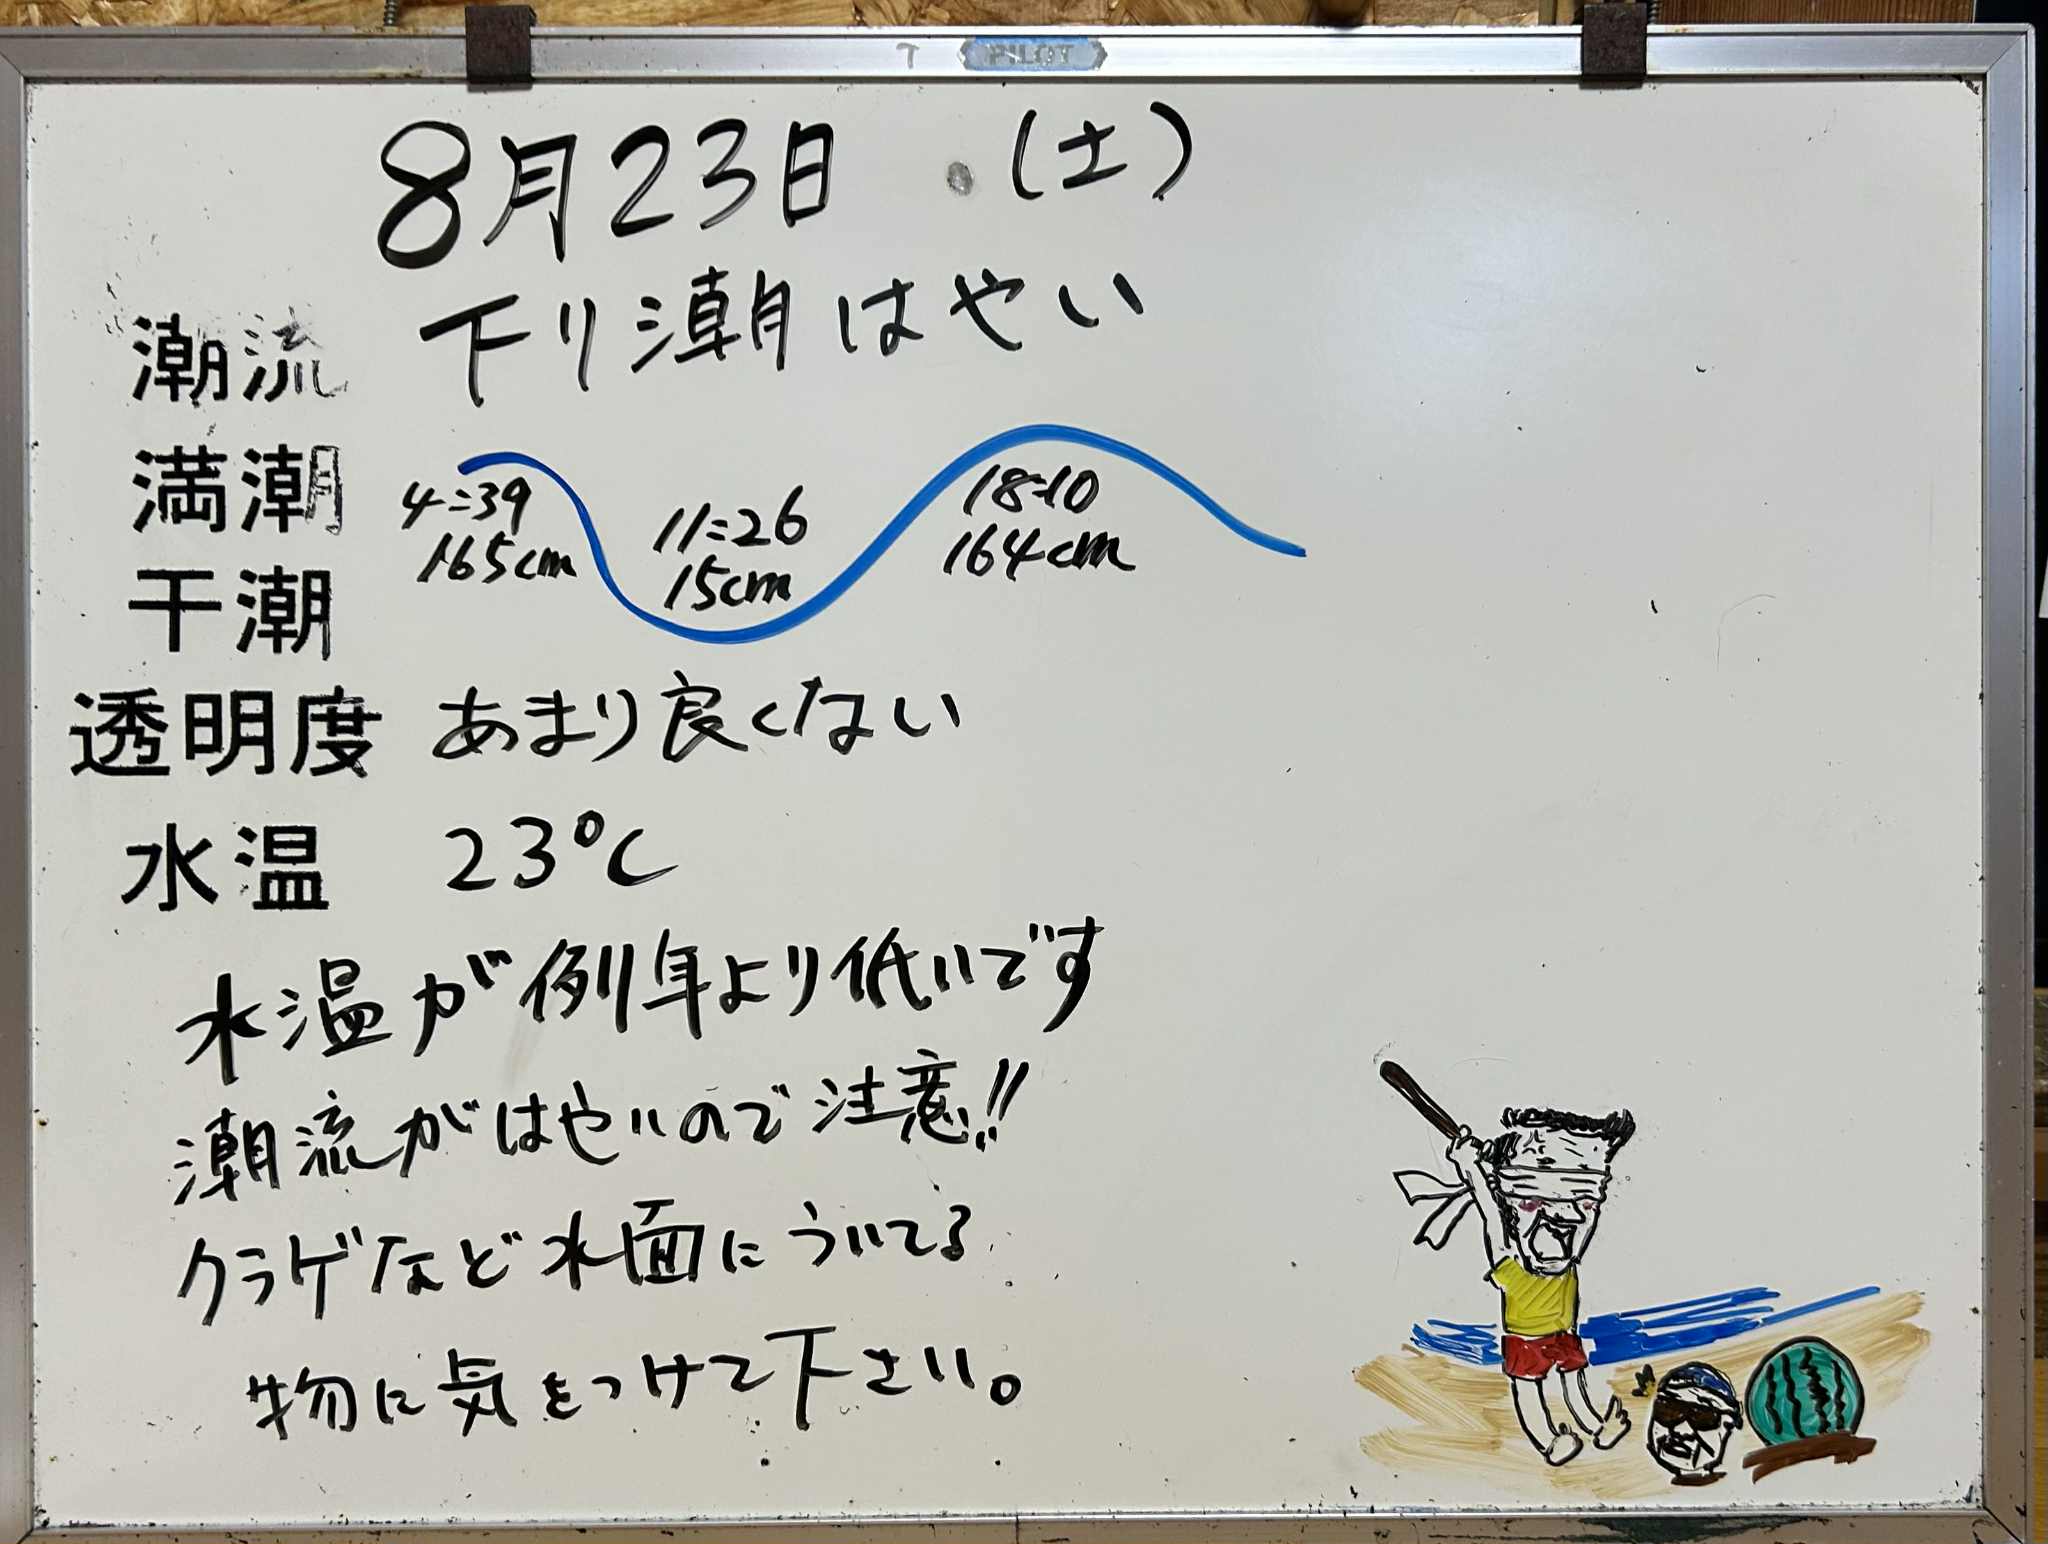 PILOT
8月23日 (土)
潮流 下り潮はやい
満潮 4:39 18:10
165cm 11:26 164cm
干潮 15cm
透明度 あまり良くない
水温 23℃
水温が例年より低いです
潮流がはやいので注意!!
クラゲなど水面にういてる
物に気をつけて下さい。